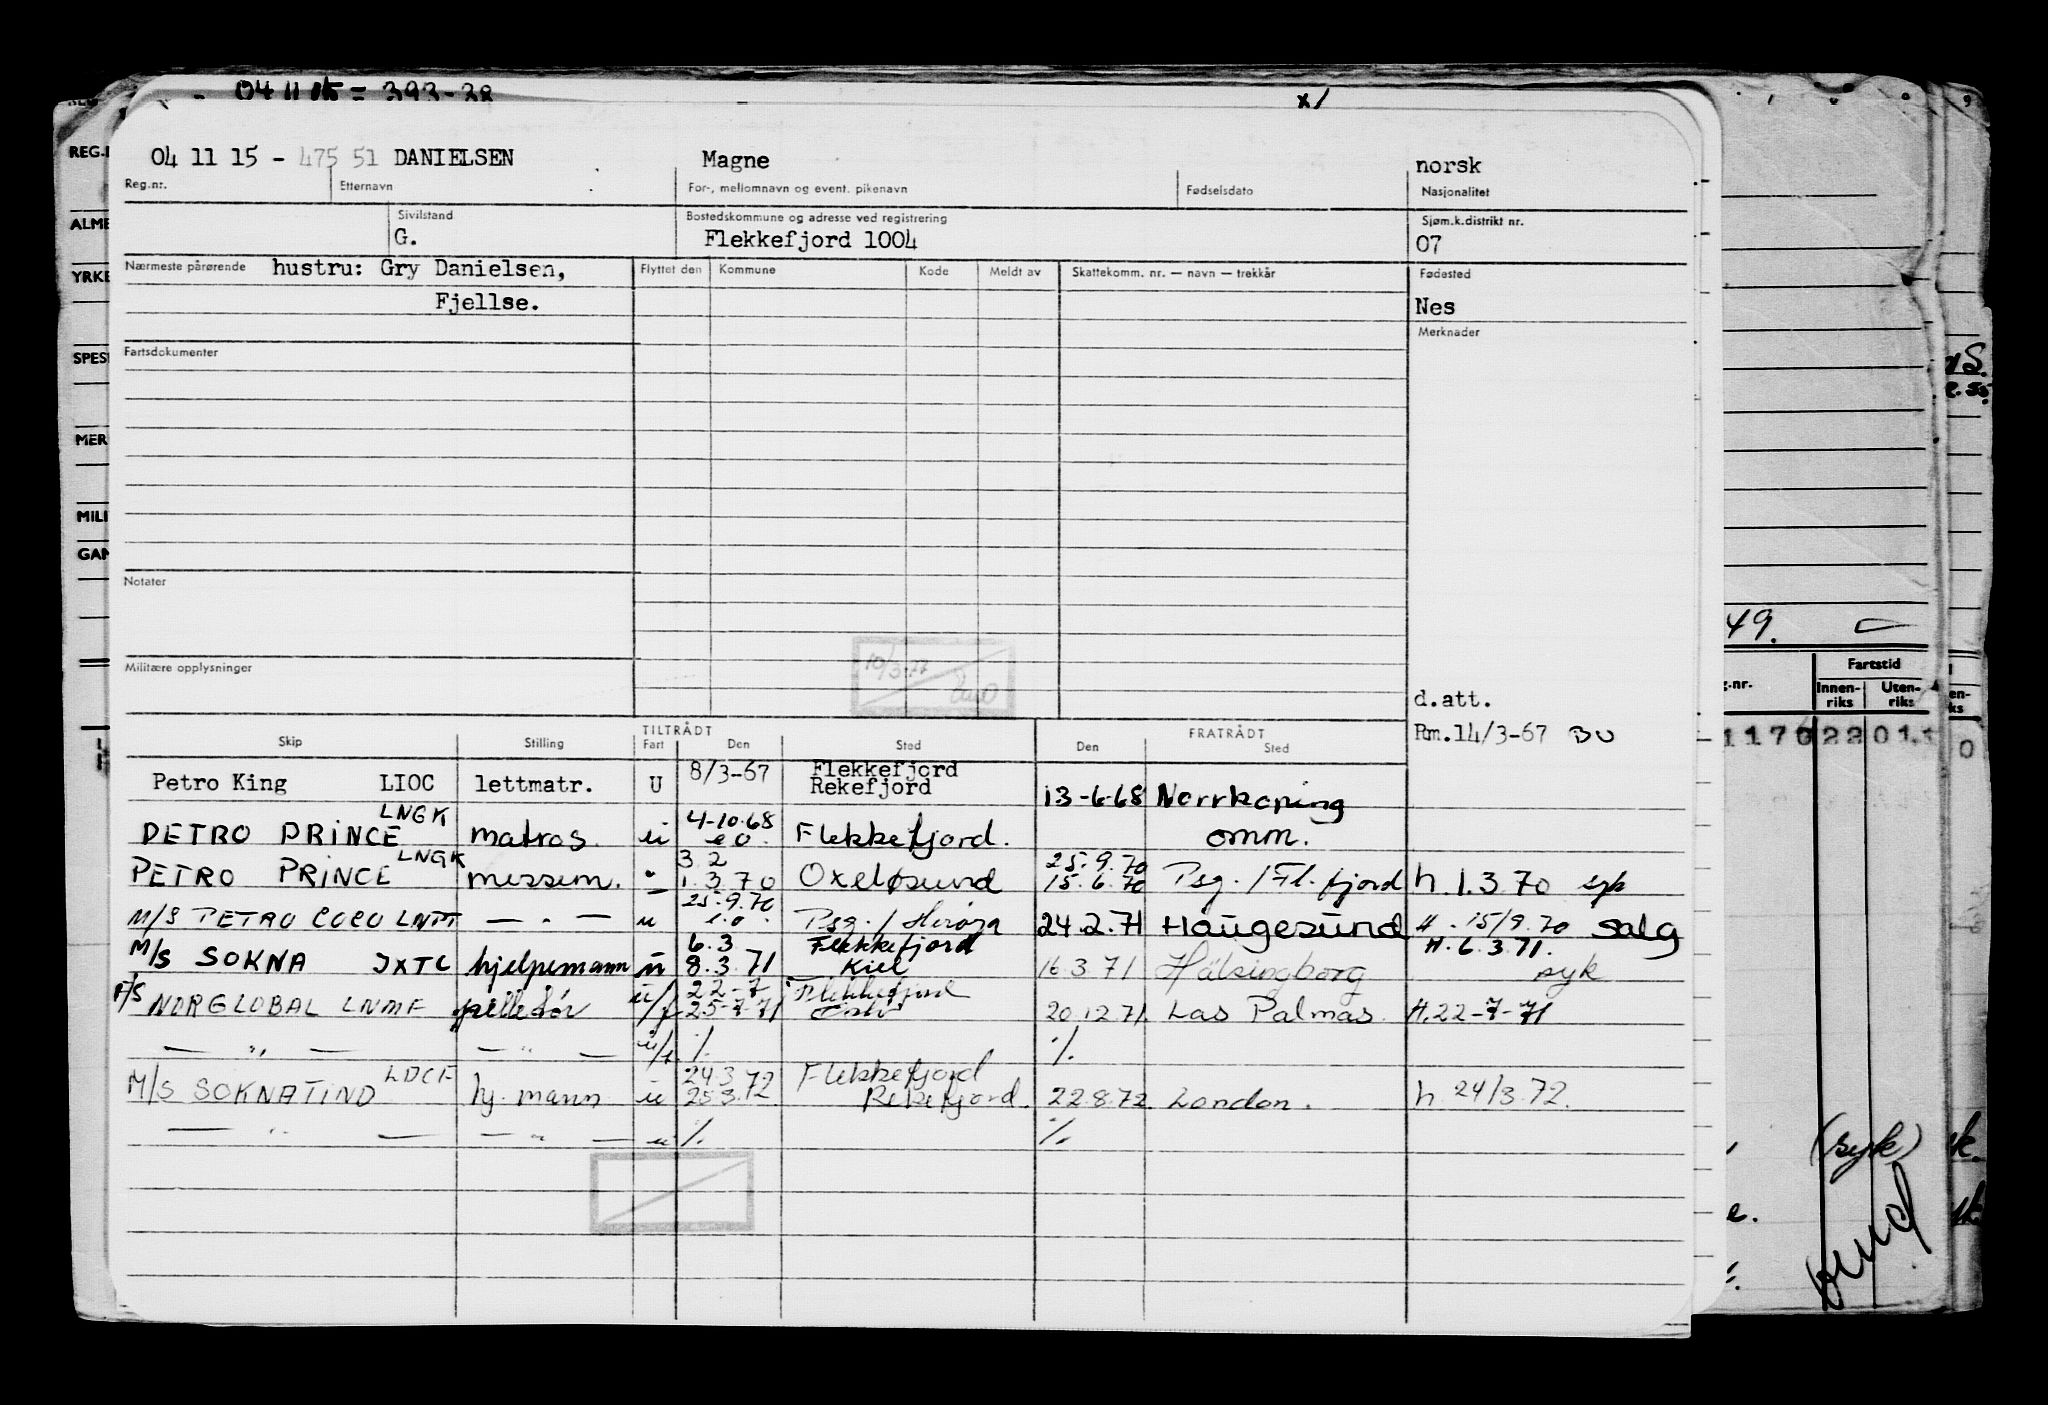 04 11 15 = 393-38
x/
04 11 15 - 475 51 DANIELSEN Magne norsk
Reg.nr. Etternavn For-, mellomnavn og event. pikenavn Fødselsdato Nasjonalitet
Sivilstand Bostedskommune og adresse ved registrering Sjøm.k.distrikt nr.
G. Flekkefjord 1004 07
Nærmeste pårørende hustru: Gry Danielsen, Flyttet den Kommune Kode Meldt av Skattekomm. nr. — navn — trekkår Fødested
Fjellse. Nes
Merknader
Fartsdokumenter
Notater
10/3-77
Militære opplysninger
d.att.
Rm.14/3-67 BU
TILTRÅDT FRATRÅDT
Skip Stilling Fart Den Sted Den Sted
Petro King LIOC lettmatr. U 8/3-67 Flekkefjord
Rekefjord 13-6-68 Norrkoping
PETRO PRINCE LNGK matros. u 4-10.68 e.o. Flekkefjord. omm.
PETRO PRINCE LNGK messem. " 3.2 1.3.70 Oxeløsund 25.9.70 15.6.70 Psg. / Fl.fjord h. 1.3.70 syk
M/S PETRO COCO — " — u 25.9.70 e.o. Psg. / Herøya 24.2.71 Haugesund H. 15/9.70 salg
M/S SOKNA JXTC hjelpemann u 6.3 8.3.71 Flekkefjord Kiel 16.3.71 Hälsingborg H. 6.3.71. syk
F/S NORGLOBAL LNMF u/f 22-7 25-7-71 Flekkefjord 20.12.71. Las Palmas. H.22-7-71
— " — — " — u/f. %. %.
M/S SOKNATIND LDCF hj. mann u 24.3.72 25.3.72 Flekkefjord Rekefjord. 22.8.72. London. h. 24/3.72.
— " — — " — u %. %.
REG.
ALME
YRKE
SPES
MER
MILI
GAN
49.
g.nr. Fartstid
Innen-
riks Uten-
riks
(syk)